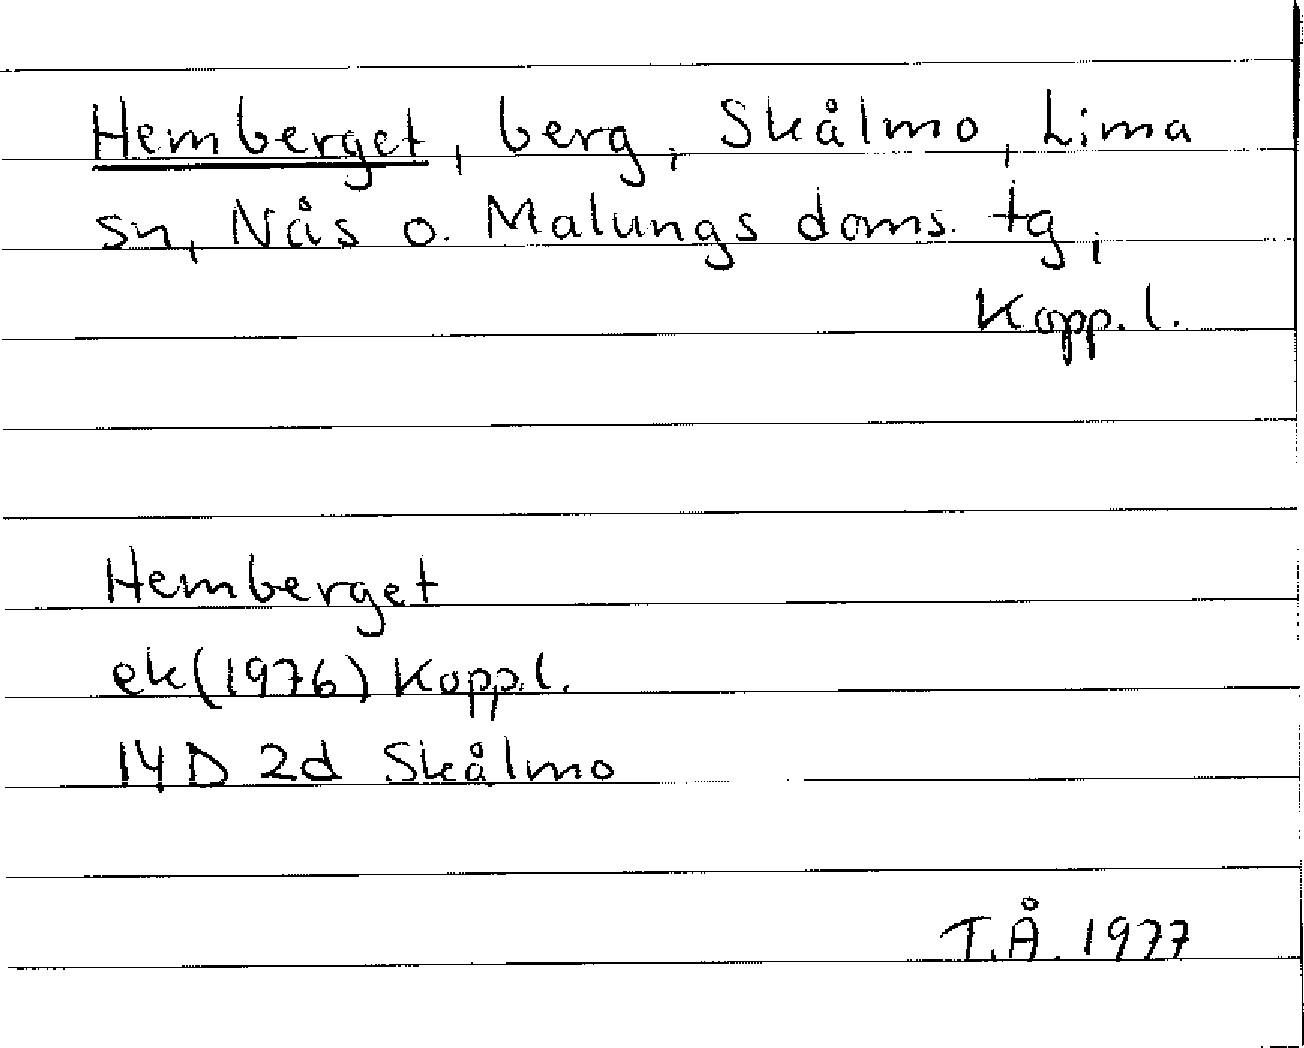 Hemberget, berg, Skålmo, Lima
sn, Nås o. Malungs doms. tg,
Kopp. l.
Hemberget
ek (1976) Kopp. l.
14 D 2d Skålmo
T.Å. 1977